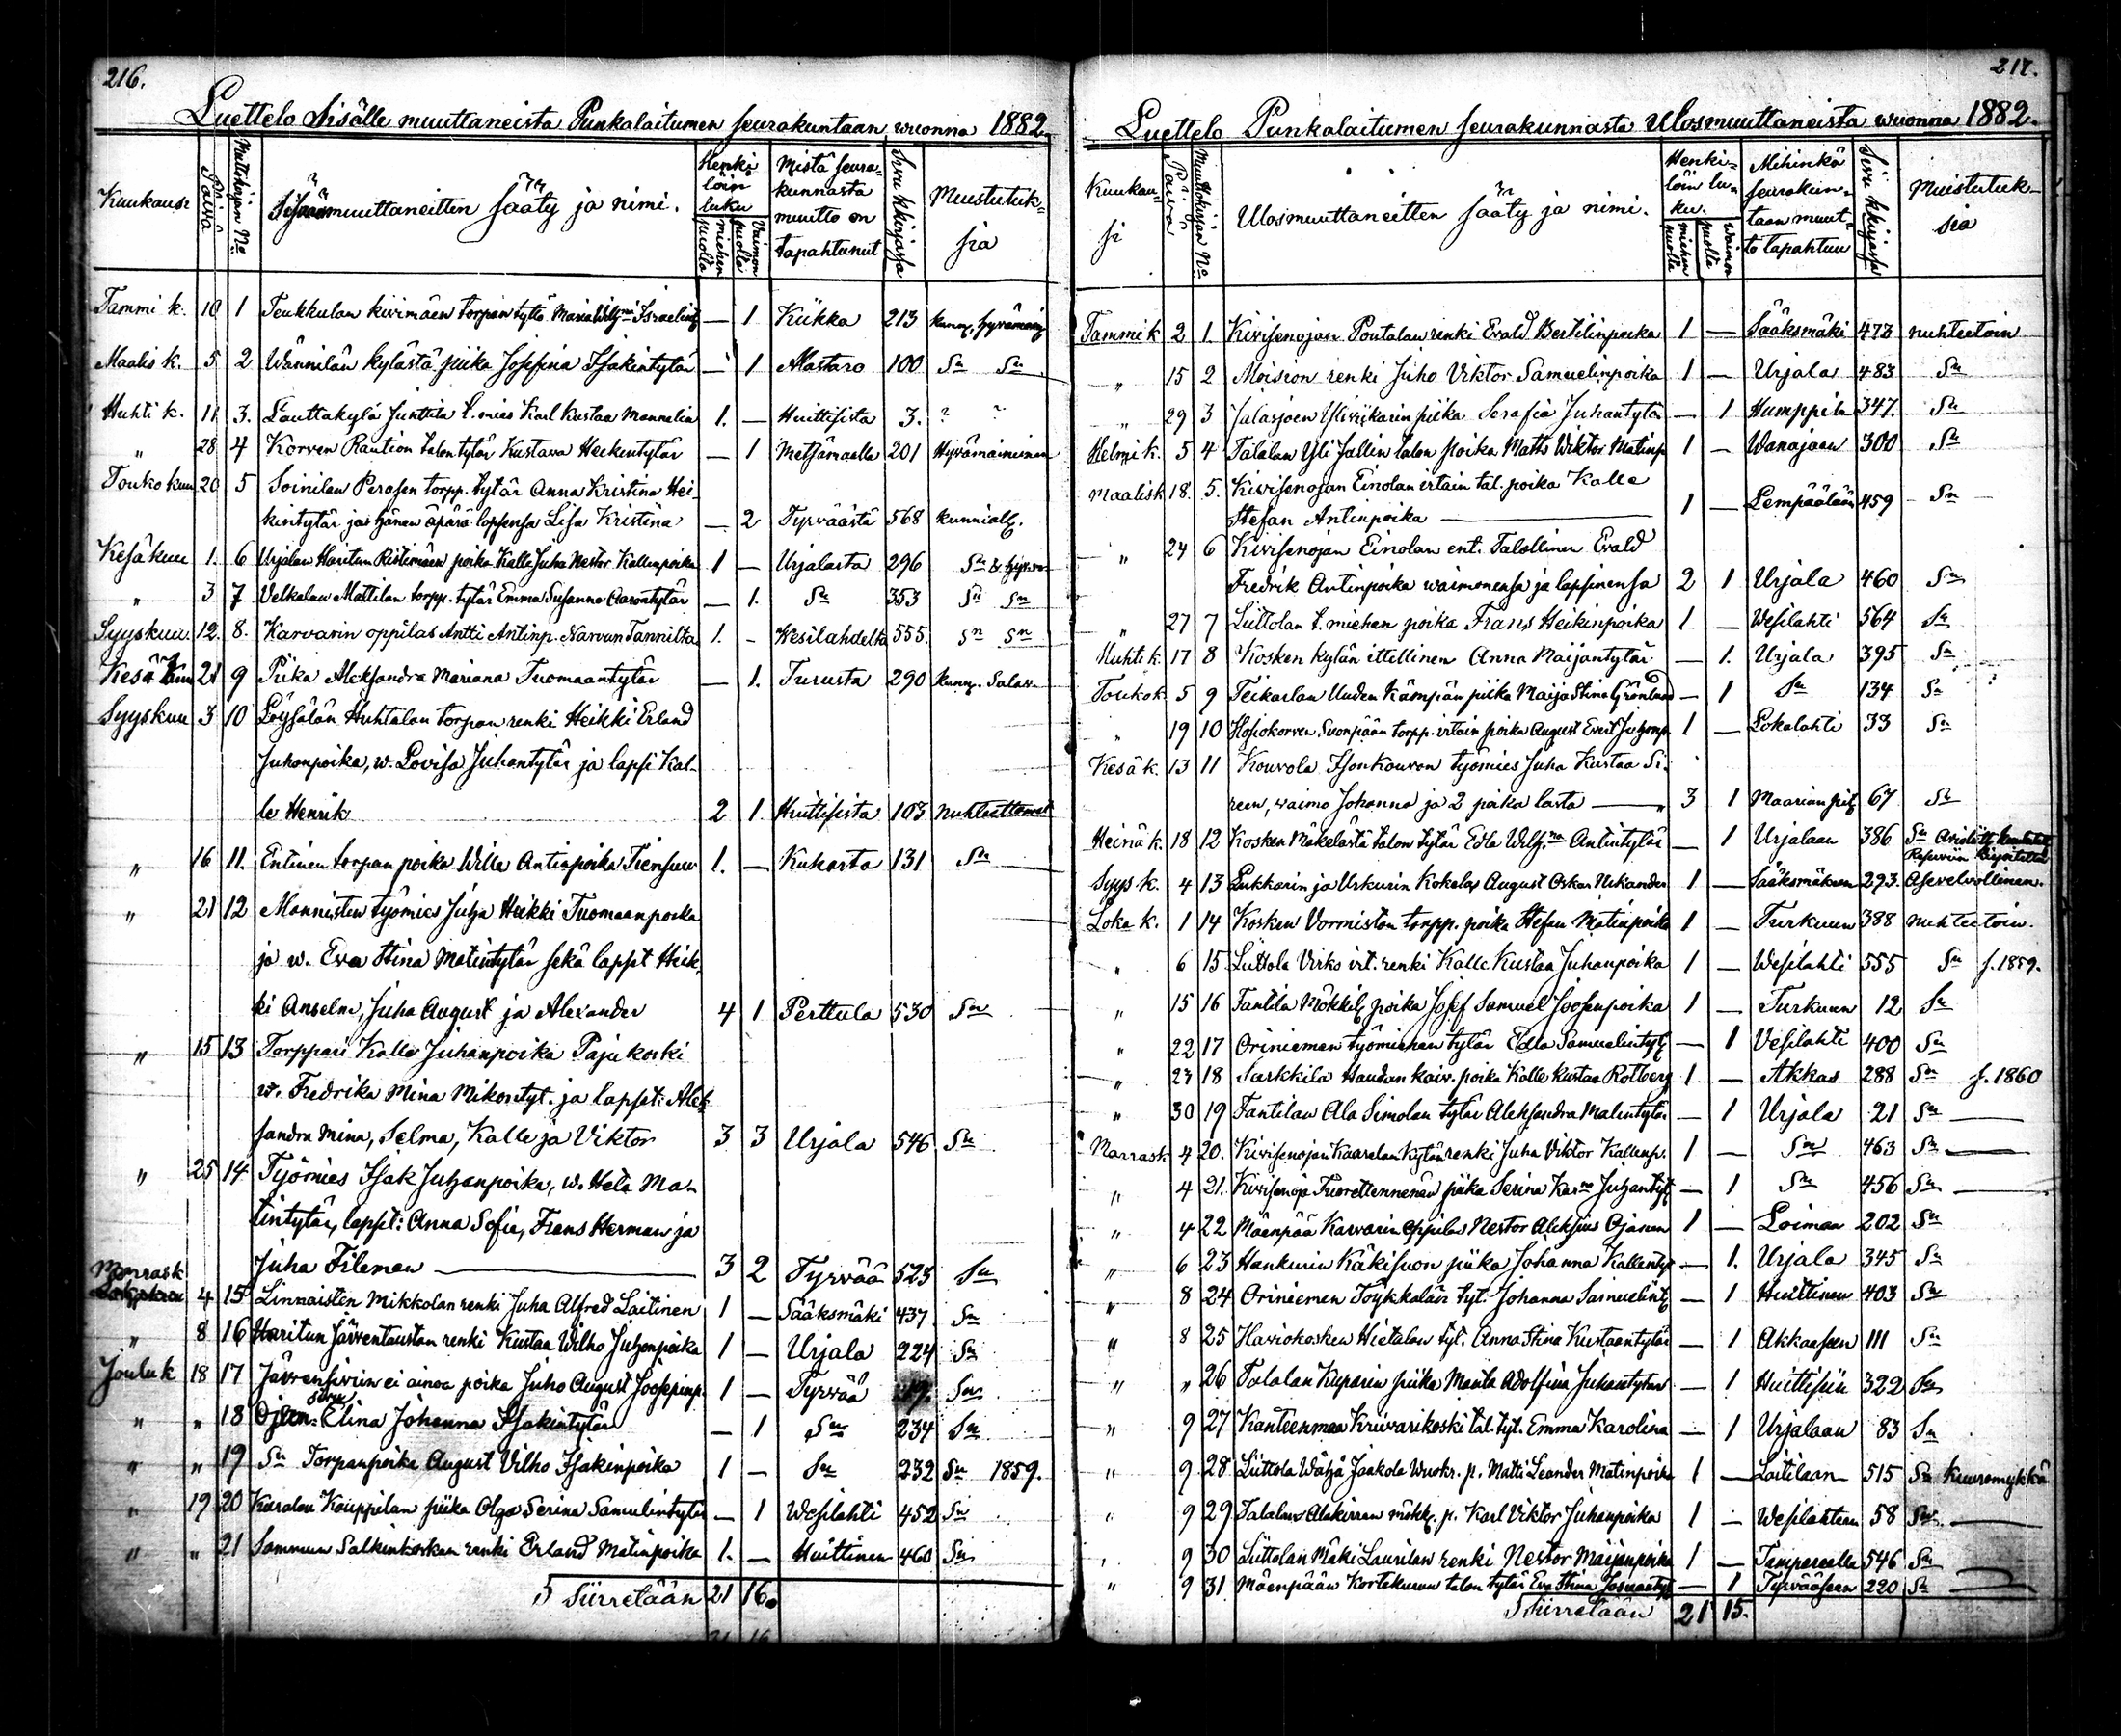 216.
Luettelo Sisälle muuttaneista Punkalaitumen seurakuntaan wuonna 1882.
Kuukausi Päivä Muutokirjan No Sisäänmuuttaneitten sääty ja nimi. Henki löin luku miehen puolta Vaimon puolta Mistä seurakunnasta muutto on tapahtunut Sivu kkirjassa Muistutuksia
Tammi k. 10 1 Teukkulan kivimäen torpan tytö Maria Israelint 1 Kiikka 213
Maalis k. 5 2 Wännilän kylästä piika Josefina Isakintytär — 1 Alastaro 100 Sn Sn
Huhti k. 11 3. Lauttakylä Junttila t. mies Karl Kustaa Mannelin 1. — Huittisista 3. ? ?
„ 28 4 Korven Raution talon tytär Kustava Heikintytär — 1 Metsämaalla 201 Hyvämaininen
Toukokuu 20 5 Soinilan Perasen torpp. tytär Anna Kristina Hei-
kintytär ja hänen äpärä lapsensa Lisa Kristina — 2 Tyrväästä 568 kunniall.
Kesäkuu 1. 6 Urjalan Haritun Ristimäen poika Kalle Juha Nestor Kallenpoika 1 — Urjalasta 296 Sn
„ 3 7 Velkalan Mattilan torpp. tytär Emma Susanna Aarontytär — 1. Sn 353 Sn Sn
Syyskuu 12. 8. Karvarin oppilas Antti Antinp. Narvan Tannilta 1. - Vesilahdelta 555. Sn Sn
Kesäkuu 21 9 Piika Aleksandra Mariana Tuomaantytär — 1. Turusta 290
Syyskuu 3 10 Löysälän Huhtalan torpan renki Heikki Erland
Juhonpoika, w. Lovisa Juhantytär ja lapsi Kal-
le Henrik 2 1. Huittisista 103 nuhteettomat
„ 16 11. Entinen torpan poika Wille Antinpoika Tiensuu 1. — Kuhasta 131 Sn
„ 21 12 Mannisten työmies Juha Heikki Tuomaanpoika
ja w. Eva Stina Matintytär sekä lapset Heik-
ki Anselm, Juha August ja Alexander 4 1 Perttula 530 Sn
„ 15 13 Torppari Kalle Juhanpoika Pajukoski
w. Fredrika Mina Mikontyt. ja lapset: Alek-
sandra Mina, Selma, Kalle ja Viktor 3 3 Urjala 546 Sn
„ 25 14 Työmies Isak Juhanpoika, w. Heta Ma-
tintytär, lapset: Anna Sofia, Frans Herman ja
Juha Fileman — 3 2 Tyrvää 523 Sn
Marrask 4 15 Linnaisten Mikkolan renki Juha Alfred Laitinen 1 — Sääksmäki 437 Sn
„ 8 16 Haritun Järventaustan renki Kustaa Wilho Juhonpoika 1 — Urjala 224 Sn
Jouluk 18 17 Järvensivun ei ainoa poika Juho August Joosepinp. 1 — Tyrvää Sn
„ „ 18 Elina Johanna Isakintytär — 1 Sn 234 Sn
„ „ 19 Sn Torpanpoika August Vilho Isakinpoika 1 — Sn 232 Sn 1859.
„ 19 20 Karalan Kouppilan piika Olga Serina Samulintytär — 1 Wesilahti 452 Sn
„ „ 21 Sammun Salkinkosken renki Erland Matinpoika 1. — Huittinen 460 Sn
Siirretään 21 16.
217.
Luettelo Punkalaitumen seurakunnasta Ulosmuuttaneista wuonna 1882.
Kuukausi Päivä Muuttokirjan No Ulosmuuttaneitten sääty ja nimi. Henkilöin luku. miehen puolta waimon puolta Mihinkä seurakuntaan muutto tapahtuu Sivu kkirjassa Muistutuksia
Tammik 2 1. Kivisenojan Pontalan renki Evald Bertilinpoika 1 — Sääksmäki 473 nuhteetoin
„ 15 2 Moision renki Juho Viktor Samuelinpoika 1 — Urjala 483 Sn
„ 29 3 Jalasjoen piika Serafia Juhantytär — 1 Humppila 347. Sn
Helmi k. 5 4 Talalan Yli Jallin talon poika Matts Wiktor Matinp 1 - Wanajaan 300 Sn
Maalisk 18. 5. Kivisenojan Einolan irtain tal. poika Kalle
Stefan Antinpoika — 1 — Lempäälään 459 Sn
„ 24 6 Kivisenojan Einolan ent. Talollinen Evald
Fredrik Antinpoika waimonensa ja lapsinensa 2 1 Urjala 460 Sn
„ 27 7 Liittolan t. miehen poika Frans Heikinpoika 1 — Wesilahti 564 Sn
Huhti k. 17 8 Kosken kylän ittellinen Anna Maijantytär — 1. Urjala 395 Sn
Toukok. 5 9 Teikarlan Uuden Kämpän piika Maija Stina Grönlund — 1 Sn 134 Sn
„ 19 10 Hosiokorven Suonpään torpp. irtain poika August Evert Juhonp. 1 — Lokalahti 33 Sn
Kesä k. 13 11 Kouvola Isonkouvon työmies Juha Kustaa Si-
reen, waimo Johanna ja 2 poika lasta — 3 1 Maarian pit 67 Sn
Heinä k. 18 12 Kosken Mäkelästä talon tytär Eda Wilh.na Antintytär — 1 Urjalaan 386 Sn
Syys k. 4 13 Lukkarin ja Urkurin Kokelas August Oskar Nikander 1 — Sääksmäkeen 293. Asevelvollinen.
Loka k. 1 14 Kosken Vormiston torpp. poika Stefan Matinpoika 1 — Turkuun 388 nuhteetoin.
„ 6 15 Liittola Virko irt. renki Kalle Kustaa Juhanpoika 1 — Wesilahti 555 Sn s. 1859.
„ 15 16 Tantila Mökkil. poika Josef Samuel Joosepinpoika 1 — Turkuun 12 Sn
„ 22 17 Oriniemen työmiehen tytär Edla Samuelintyt — 1 Vesilahti 400 Sn
„ 23 18 Sarkkila Haudan kaiv. poika Kalle Kustaa Rotberg 1 — Akkas 288 Sn s. 1860
„ 30 19 Tantilan Ala Simolan tytär Aleksandra Matintytär — 1 Urjala 21 Sn
Marrask 4 20. Kivisenojan Kaarelan kylän renki Juha Viktor Kallenp. 1 — Sn 463 Sn
„ 4 21. Kivisenoja piika Serina Kar.na Juhantyt — 1 Sn 456 Sn
„ 4 22 Mäenpää Karvarin oppilas Nestor Aleksius Ojanen 1 — Loimaa 202 Sn
„ 6 23 Hankurin Käkisuon piika Johanna Kallentyt — 1. Urjala 345 Sn
„ 8 24 Oriniemen Töykkälän tyt. Johanna Samuelint — 1 Huittinen 403 Sn
„ 8 25 Haviokosken Hietalan tyt. Anna Stina Kustaantytär — 1 Akkaaseen 111 Sn
„ „ 26 Talalan Kuparin piika Manta Adolfina Juhantytär — 1 Huittisiin 322 Sn
„ 9 27 Kanteenmaa Kriivarikoski tal. tyt. Emma Karolina — 1 Urjalaan 83 Sn
„ 9 28 Liittola Wähä Jaakola Wuokr. p. Matti Leander Matinpoika 1 — Laitilaan 515 Sn Kuuromykkä
„ 9 29 Talalan Alakirran mökk. p. Karl Viktor Juhanpoika 1 — Wesilahteen 58 Sn
„ 9 30 Liittolan Mäki Laurilan renki Nestor Maijanpoika 1 — Tampereelle 546 Sn
„ 9 31 Mäenpään Kortekurun talon tytär Eva Stina — 1 Tyrvääseen 220 Sn
Siirretään 21 15.